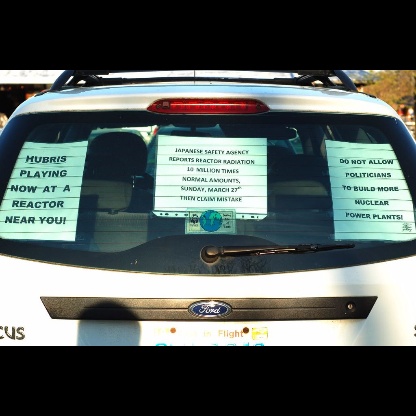 HUBRIS
PLAYING
NOW AT A
REACTOR
NEAR YOU!
JAPANESE SAFETY AGENCY
REPORTS REACTOR RADIATION
10 MILLION TIMES
NORMAL AMOUNTS,
SUNDAY, MARCH 27th
THEN CLAIM MISTAKE
DO NOT ALLOW
POLITICIANS
TO BUILD MORE
NUCLEAR
POWER PLANTS!
Ford
Flight